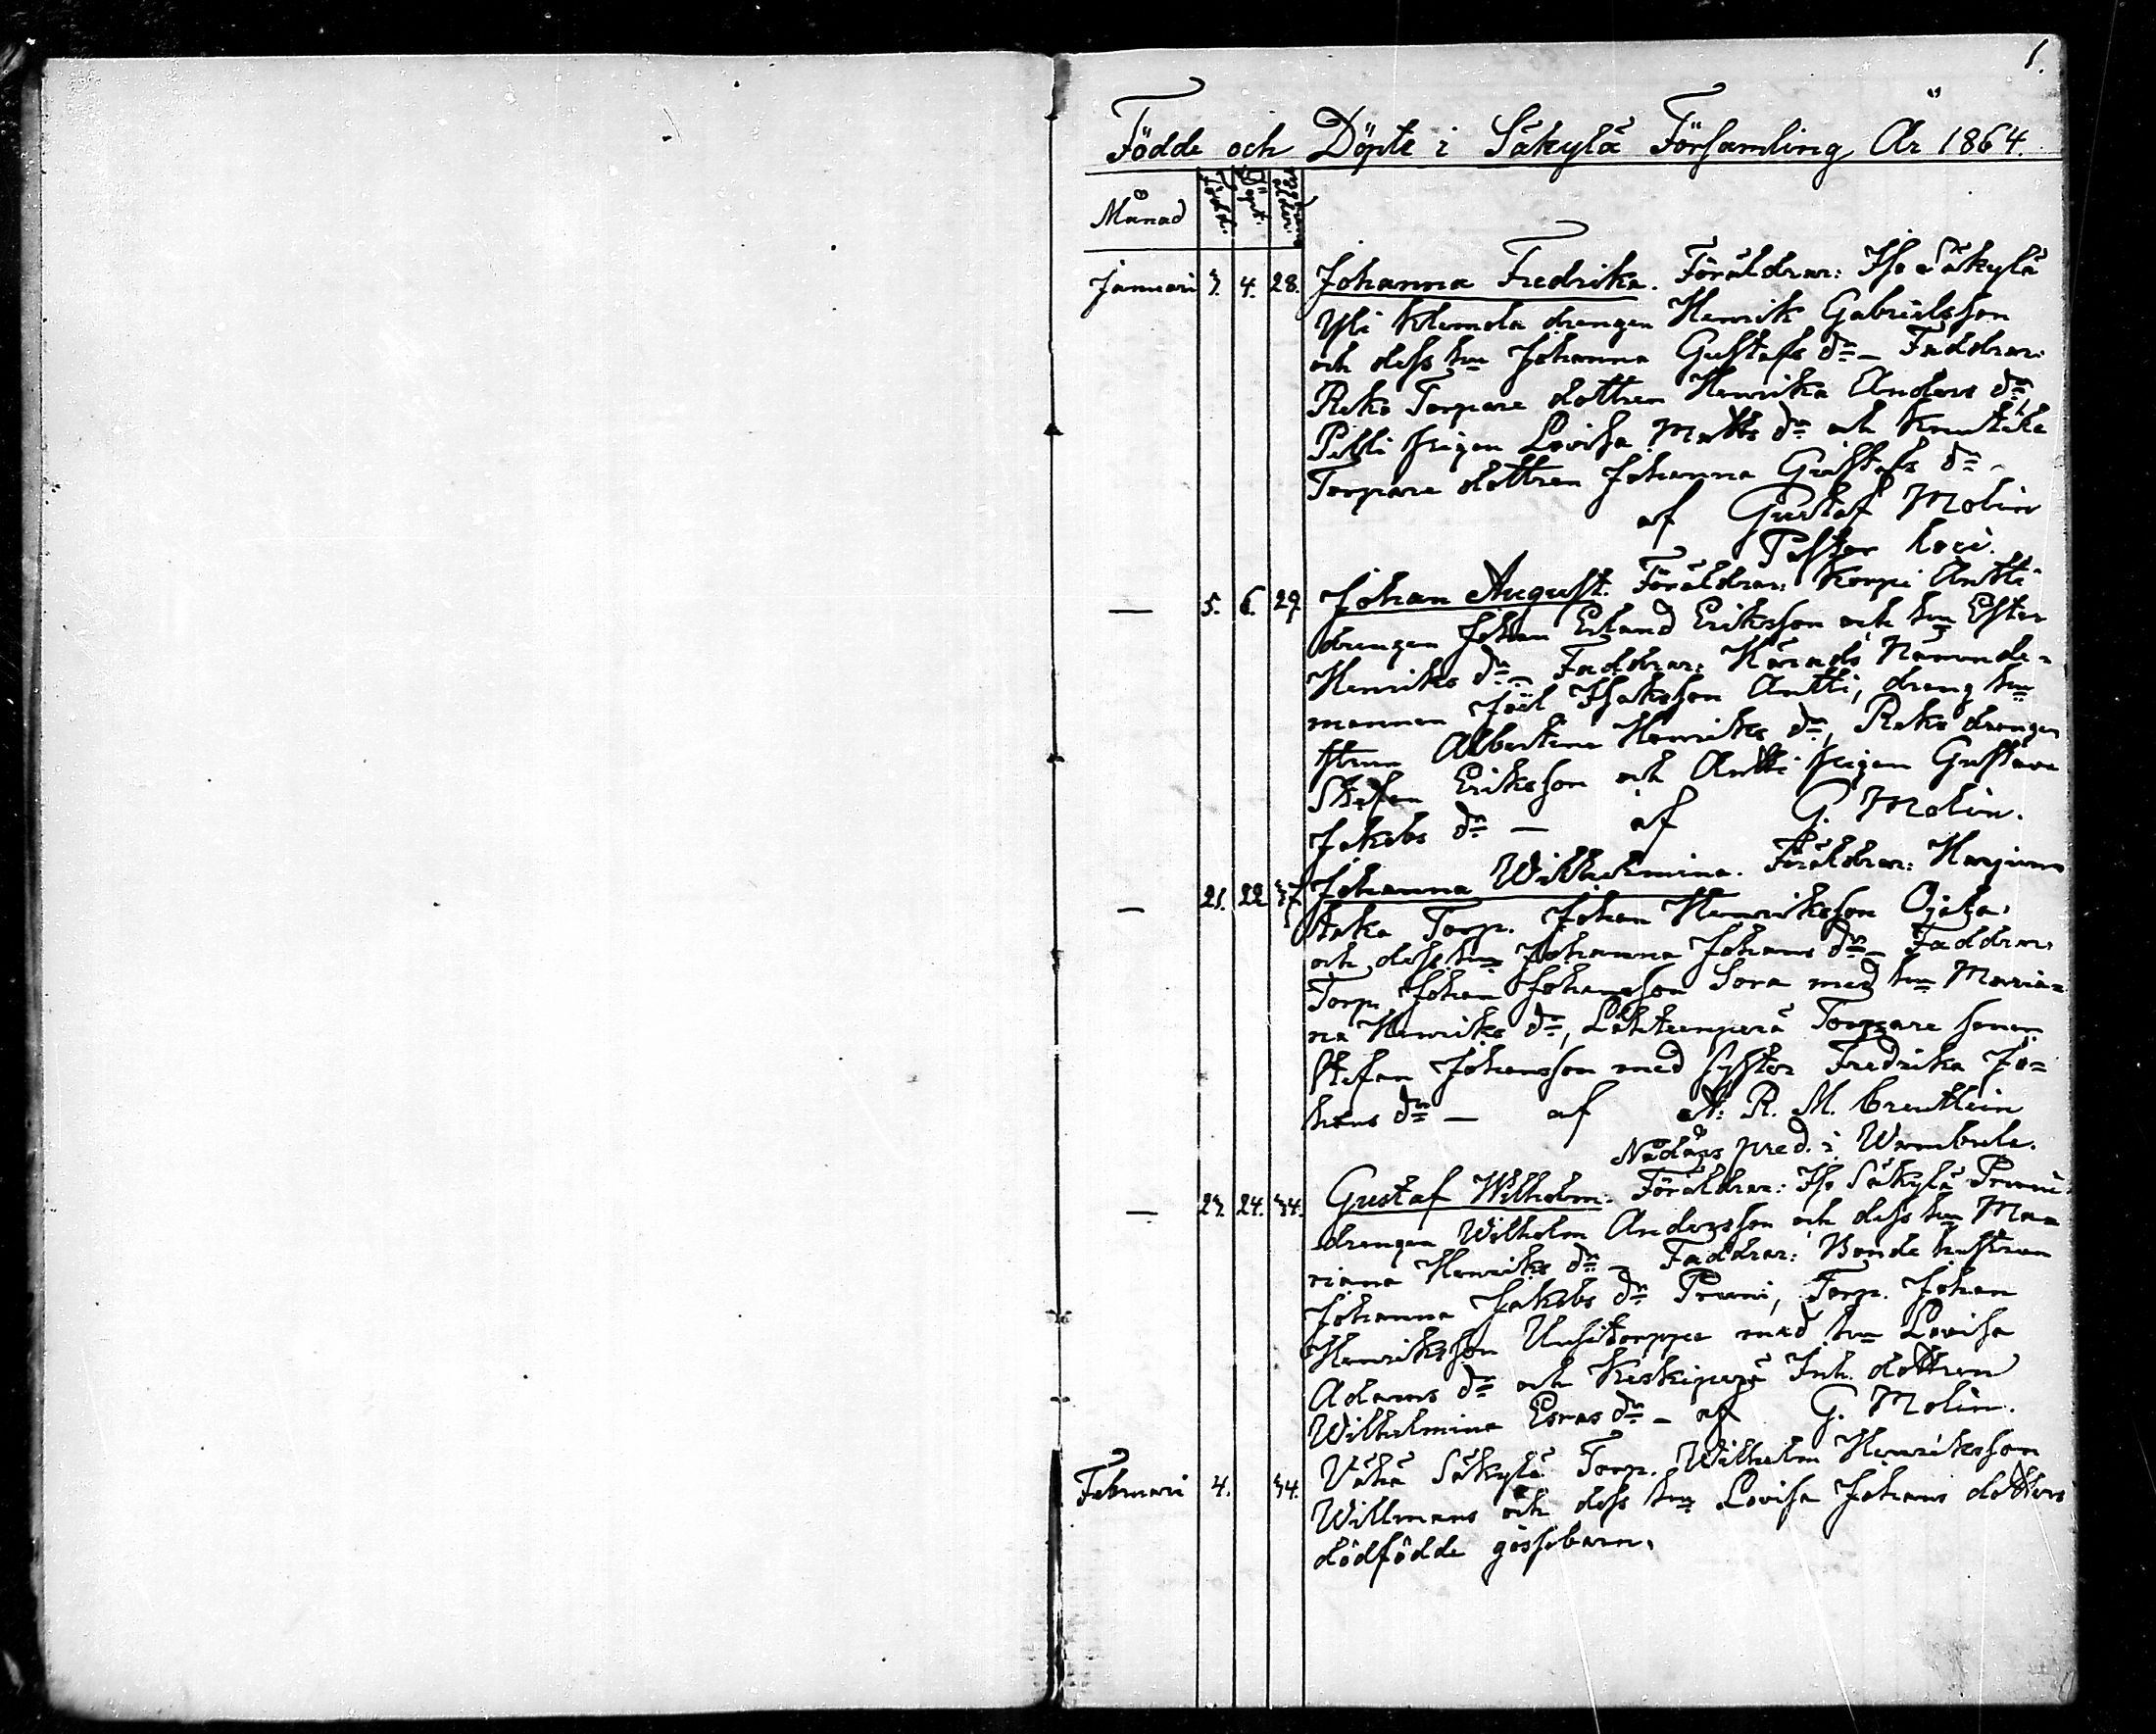 1.
Födde och Döpte i Säkylä Församling År 1864.
Månad Född. Döpt. ålder.
Januari 3. 4. 28. Johanna Fredrika. Föräldrar: Iso Säkylä
Yli Klemola drengen Henrik Gabrielsson
och dess hu Johanna Gustafs dr – Faddrar:
Reko Torpare dottren Henrika Anders dr,
Pitti pigan Lovisa Matts dr och
Torpare dottren Johanna Gustafs dr –
af Gustaf Molin
Pastor loci.
— 5. 6. 29. Johan August. Föräldrar: Korpi Antti
drengen Johan Erland Eriksson och hu Ester
Henriks dr – Faddrar: Härads Nämnde=
mannen Joel Isaksson Antti, dreng hu
strun Albertina Henriks dr, Reko drengen
Stefan Eriksson och Antti pigan Gustava
Jakobs dr — af G. Molin.
— 21. 22 37 Johanna Wilhelmina. Föräldrar: Harjuvu
Torp. Johan Henriksson Ojala
och dess hu Johanna Johans dr – Faddrar:
Torp. Johan Johansson Sora med hu Maria=
na Henriks dr, Torpare sonen
Stefan Johansson med syster Fredrika Jo=
hans dr — af A. R. M. Creutlein
Nådårs pred. i Wambula.
— 23. 24. 34. Gustaf Wilhelm. Föräldrar: Iso Säkylä Pruni
drengen Wilhelm Andersson och dess hu Ma=
riana Henriks dr – Faddrar: Bonde hustrun
Johanna Jakobs dr Pruni, Torp. Johan
Henriksson Uusitorppa med hu Lovisa
Adams dr och Keskiperä Inh. dottren
Wilhelmina Esras dr – af G. Molin.
Februari 4. 34. Vähä Säkylä Torp. Wilhelm Henriksson
Willmans och dess hu Lovisa Johans dotters
dödfödde gossebarn.